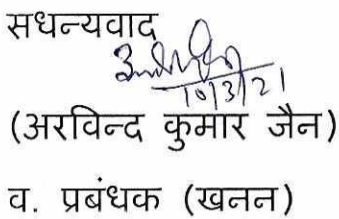 सधन्यवाद
10/3/21
(अरविन्द कुमार जैन)
व. प्रबंधक (खनन)